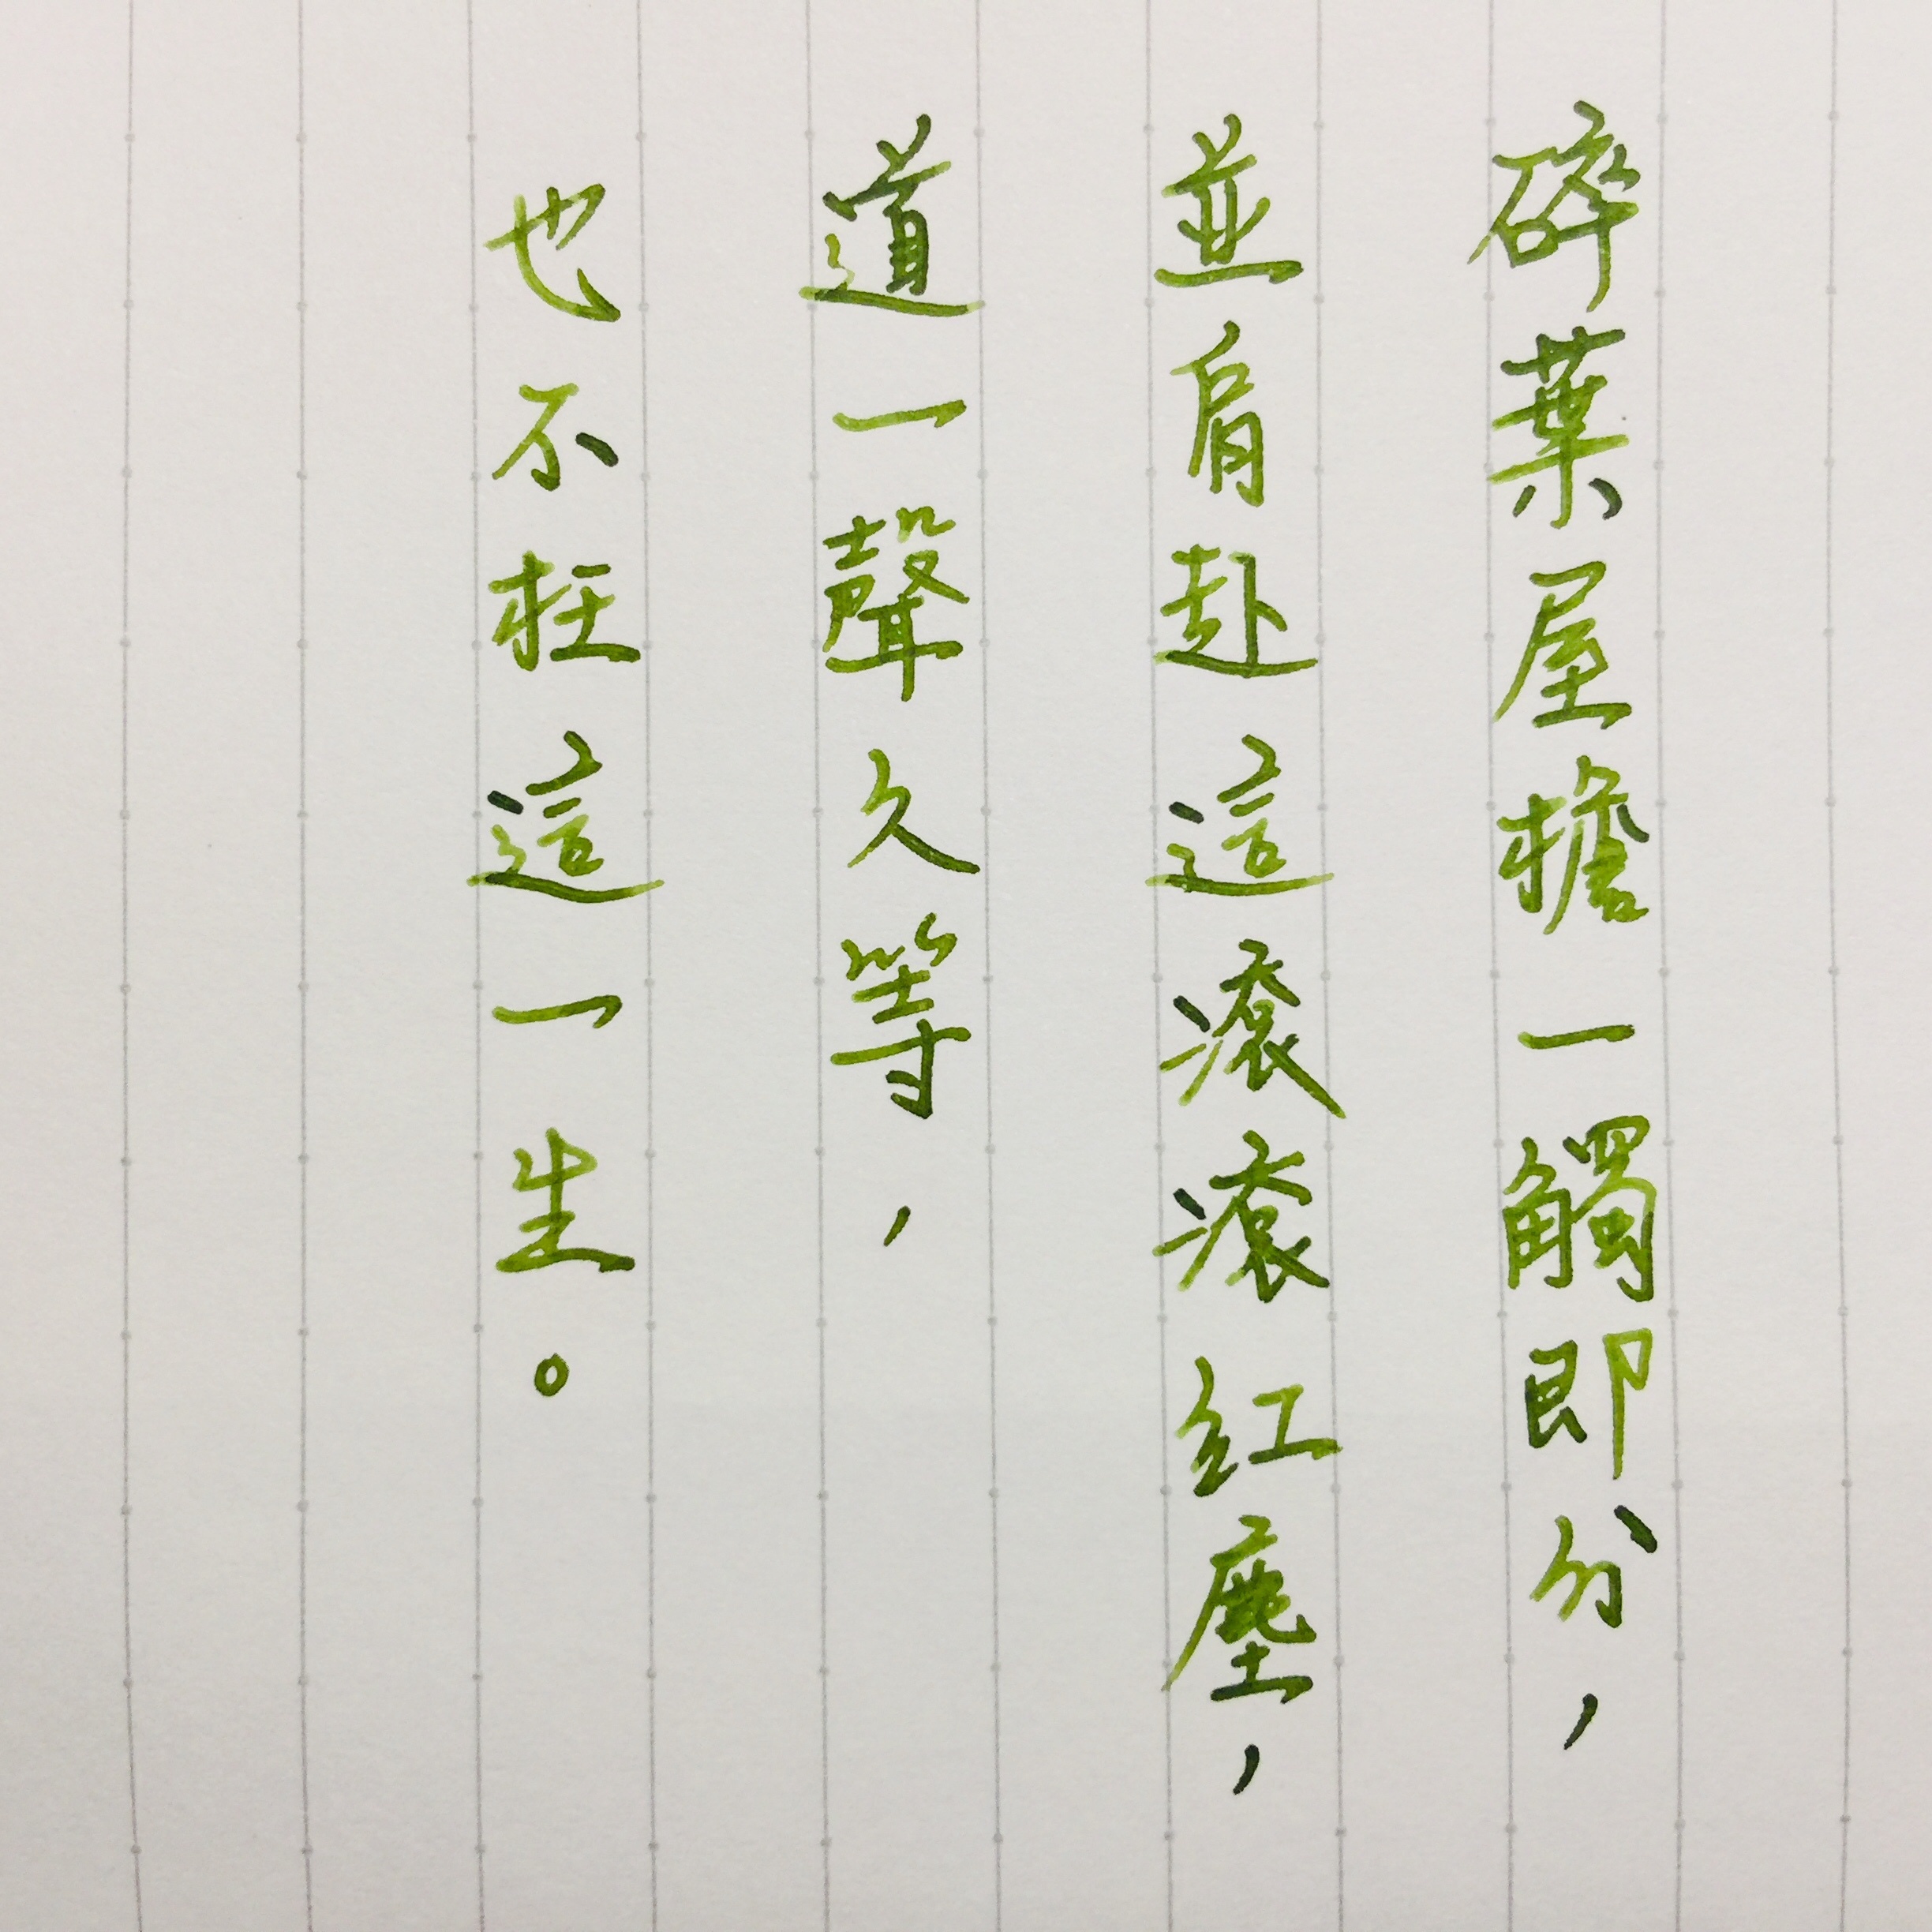 碎葉屋檐一觸即分，
並肩赴這滾滾紅塵，
道一聲久等，
也不枉這一生。